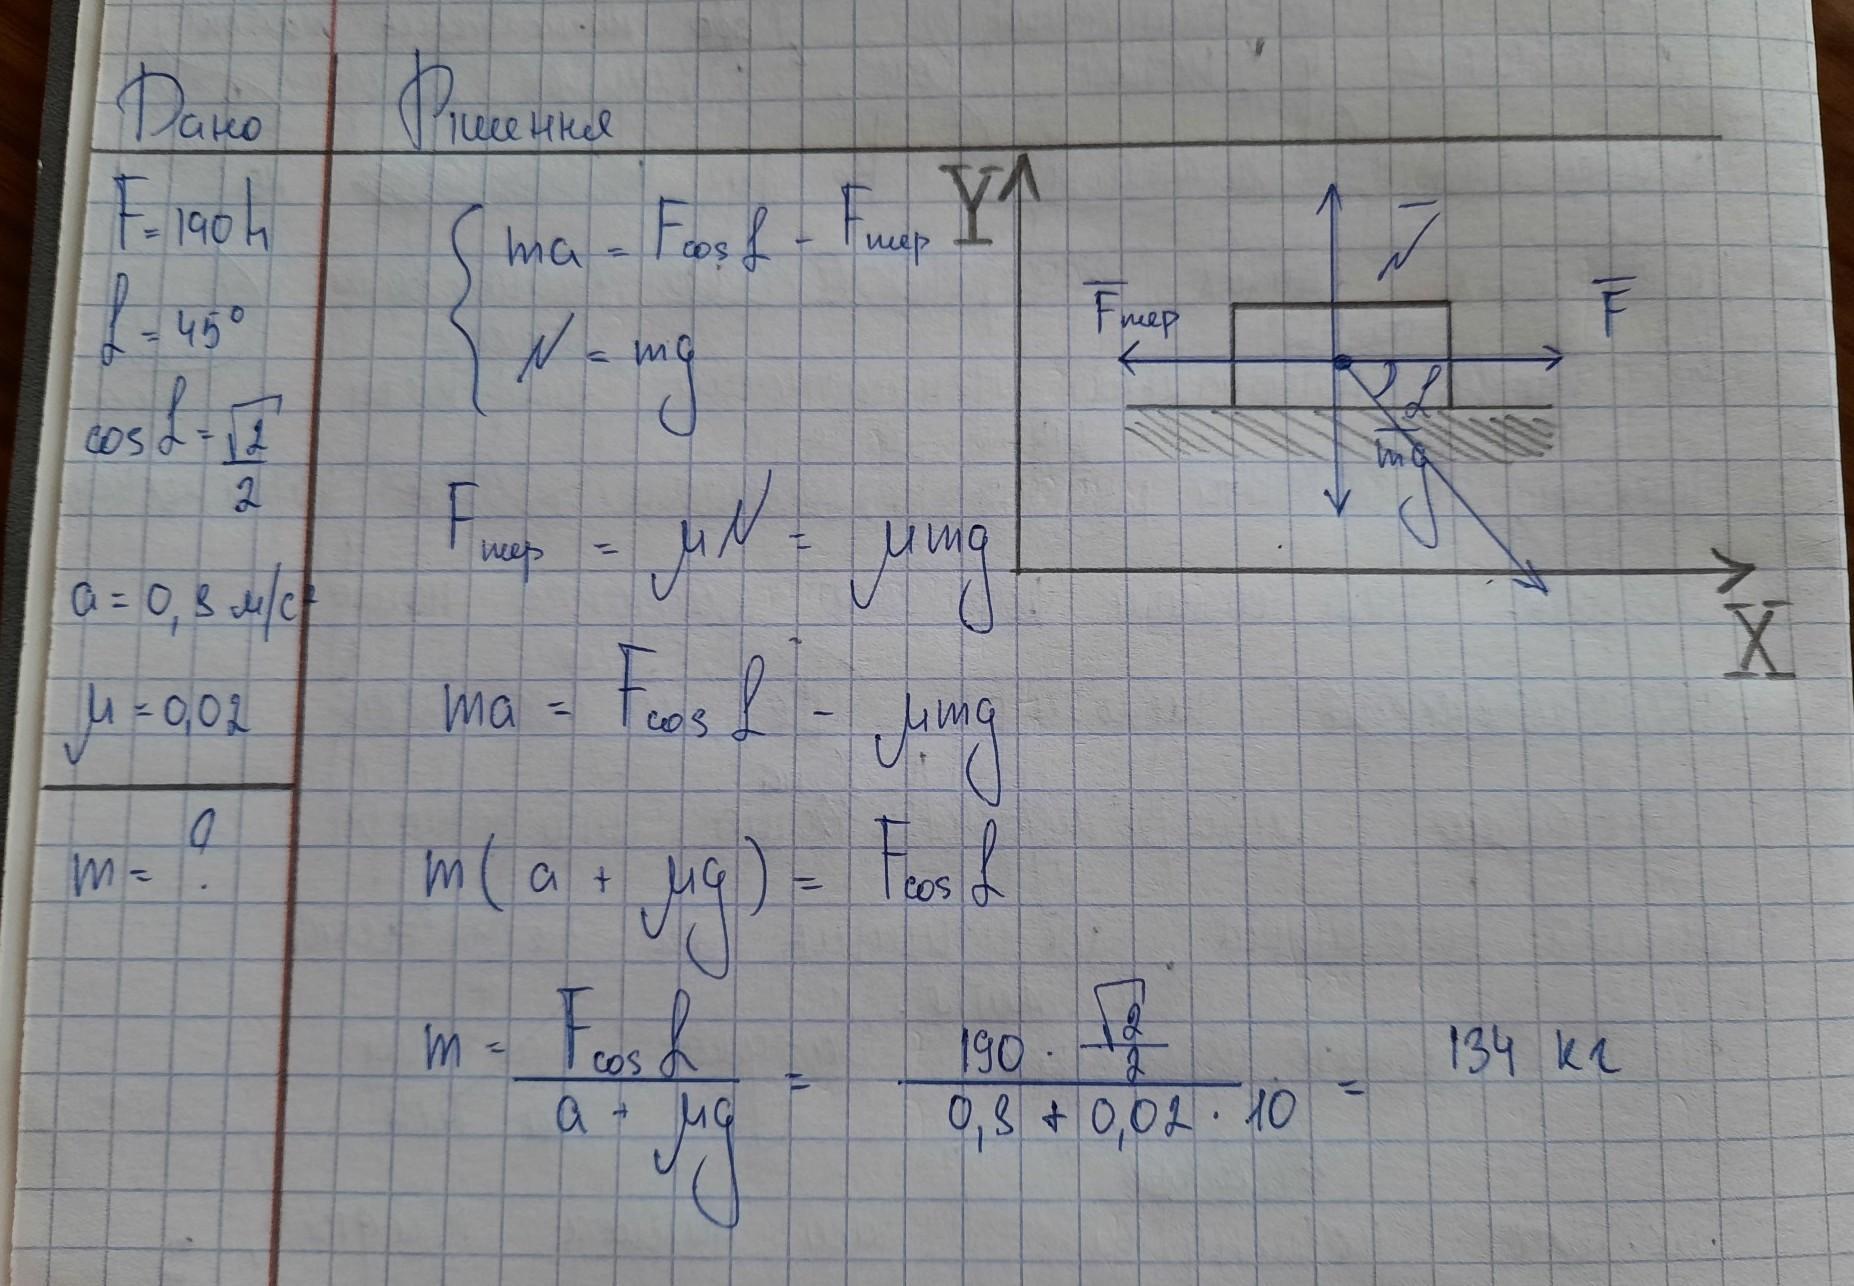 Дано
Рішення
F = 190 Н
α = 45°
cos α = √2/2
a = 0,8 м/с²
μ = 0,02
m = ?
{ ma = F cos α - Fтер
N = mg
Fтер = μN = μmg
ma = F cos α - μmg
m(a + μg) = F cos α
m = F cos α / (a + μg) = 190 · √2/2 / (0,8 + 0,02 · 10) = 134 кг
Y
N
Fтер
F
α
mg
X